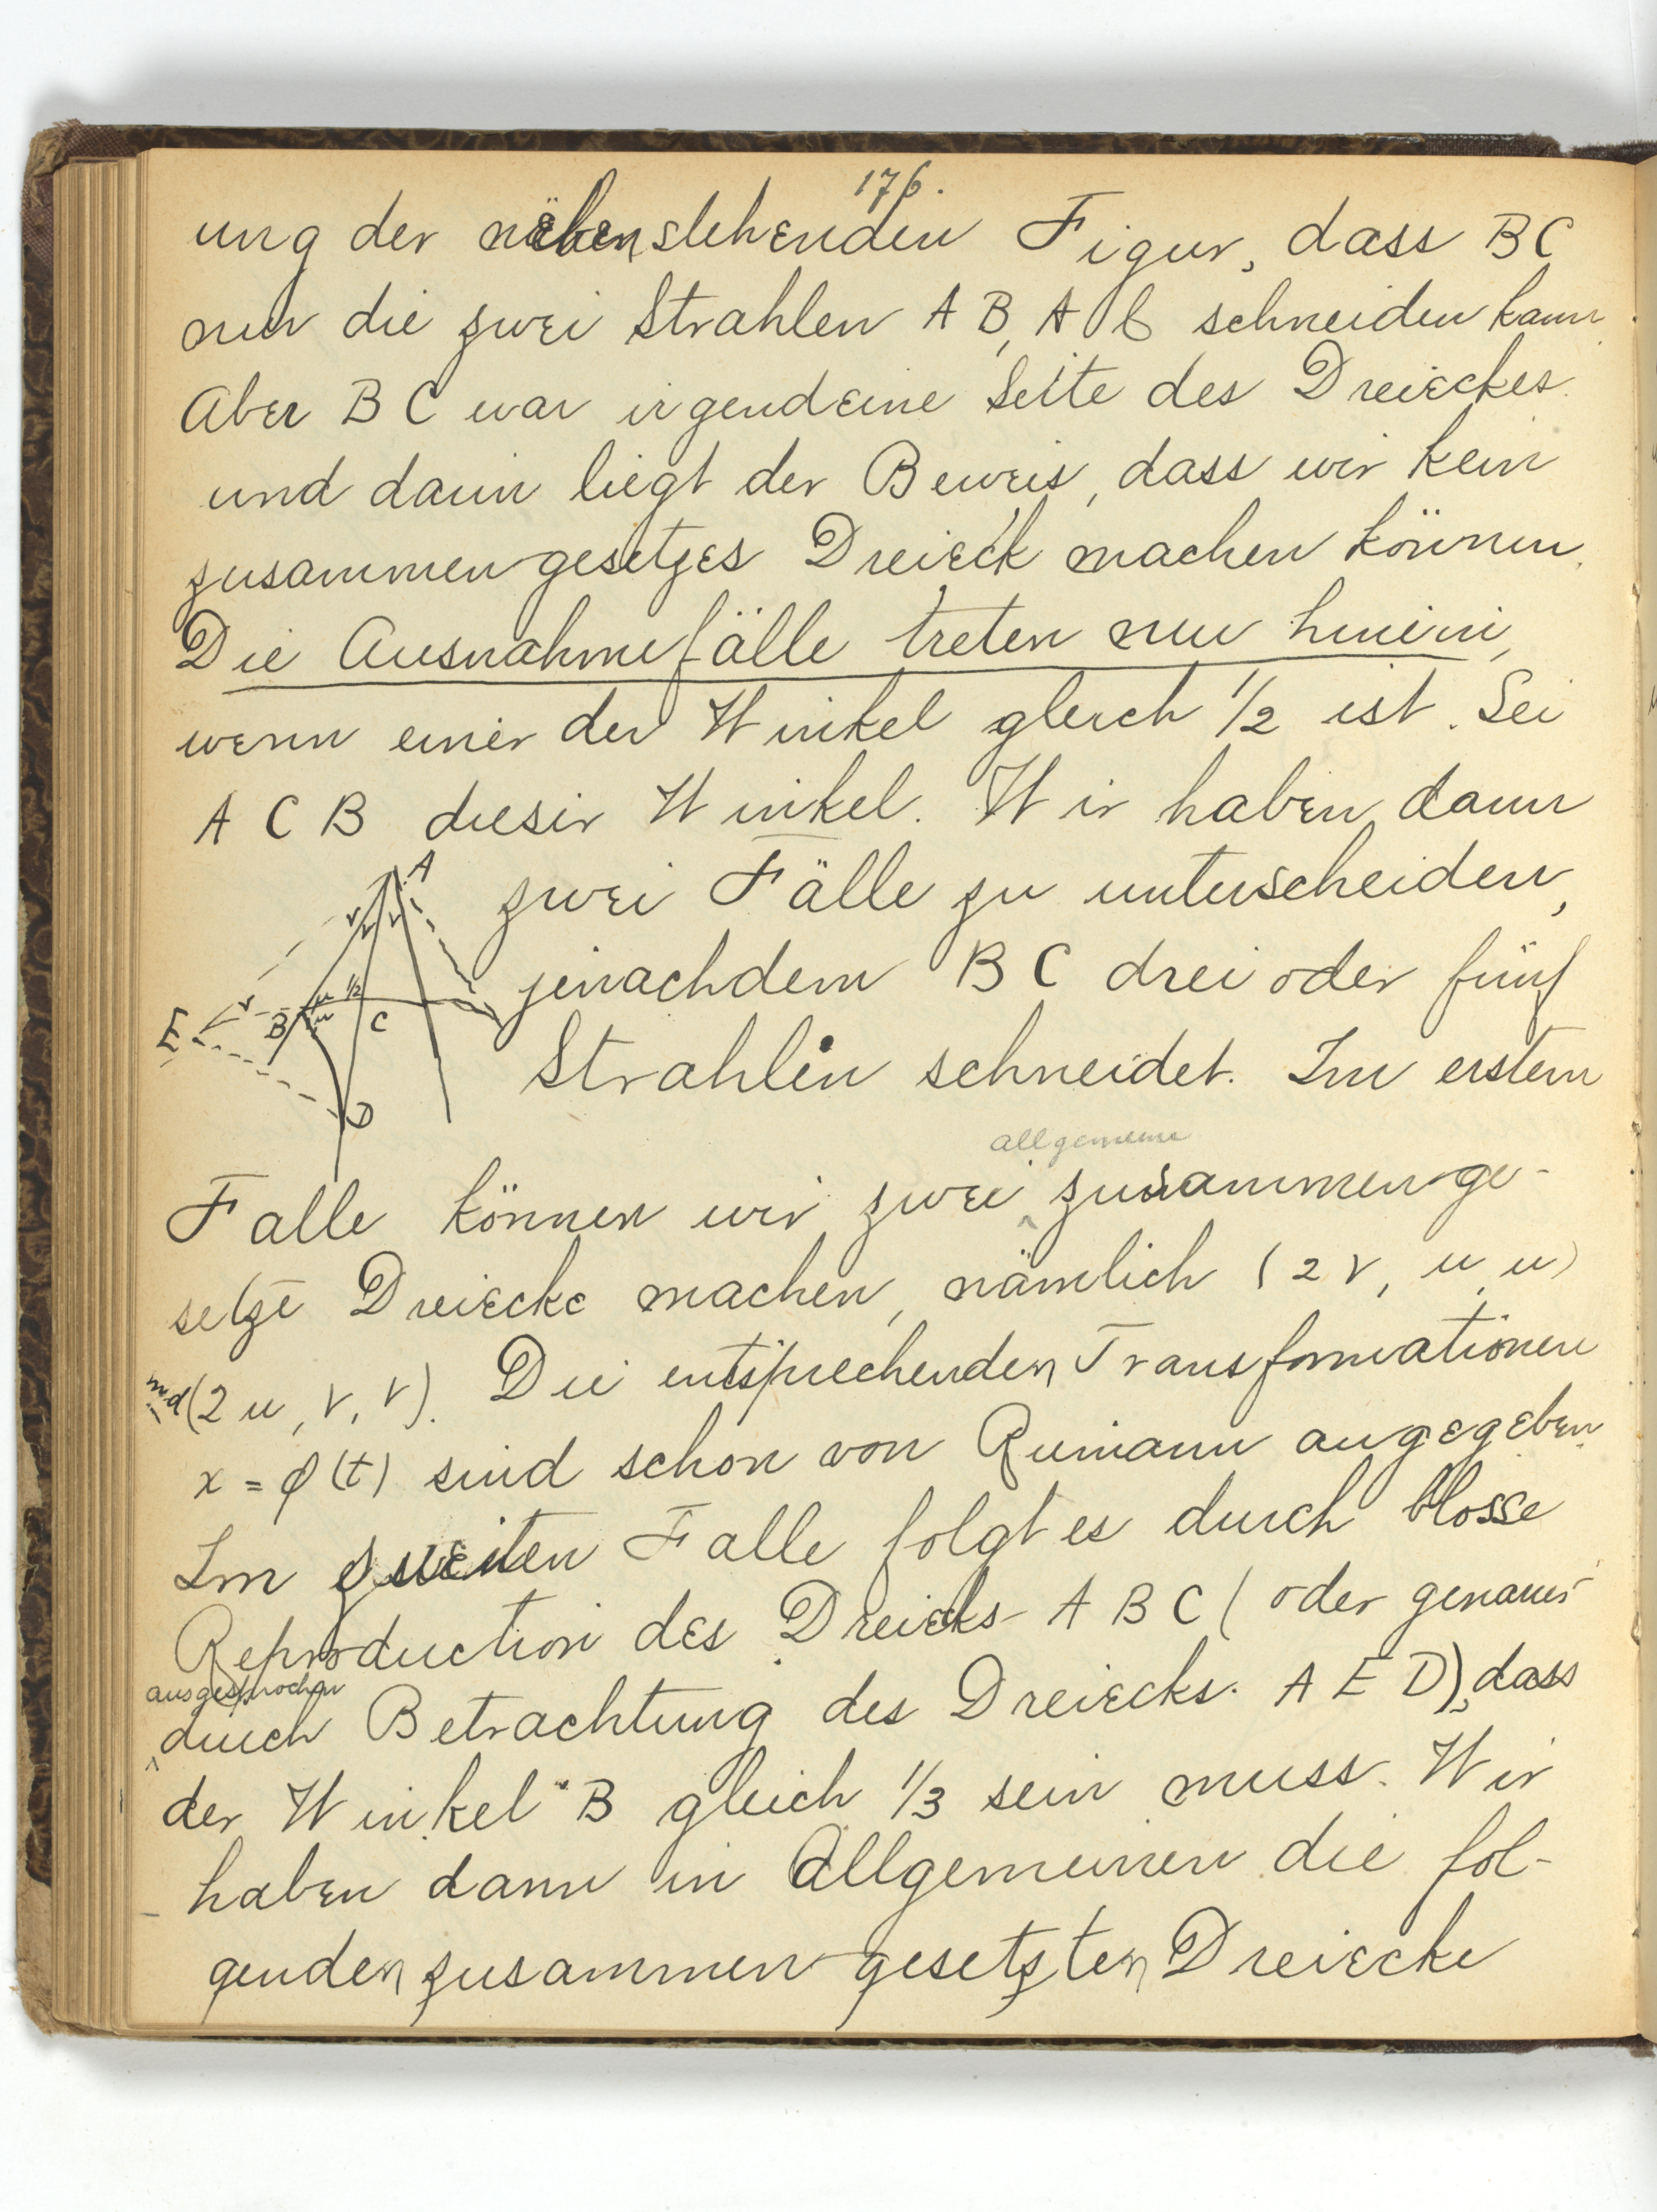 176.
ung der nebenstehenden Figur, dass BC
nur die zwei Strahlen AB, AC schneiden kann.
Aber BC war irgendeine Seite des Dreieckes
und darin liegt der Beweis, dass wir kein
zusammengesetzes Dreieck machen können.
Die Ausnahmefälle treten nun hinein,
wenn einer der Winkel gleich 1/2 ist. Sei
ACB dieser Winkel. Wir haben dann
zwei Fälle zu unterscheiden,
jenachdem BC drei oder fünf
Strahlen schneidet. Im erstem
A
v
v
v
v
u
1/2
u
E
B
C
D
allgemeine
Falle können wir zwei zusammenge-
setze Dreiecke machen, nämlich (2v, u, u)
und (2u, v, v). Die entsprechenden Transformationen
x = φ(t) sind schon von Riemann angegeben.
Im zweiten Falle folgt es durch blosse
Reproduction des Dreiecks ABC (oder genauer
ausgesprochen
durch Betrachtung des Dreiecks AED), dass
der Winkel B gleich 1/3 sein muss. Wir
haben dann in Allgemeinen die fol-
genden zusammengesetzten Dreiecke